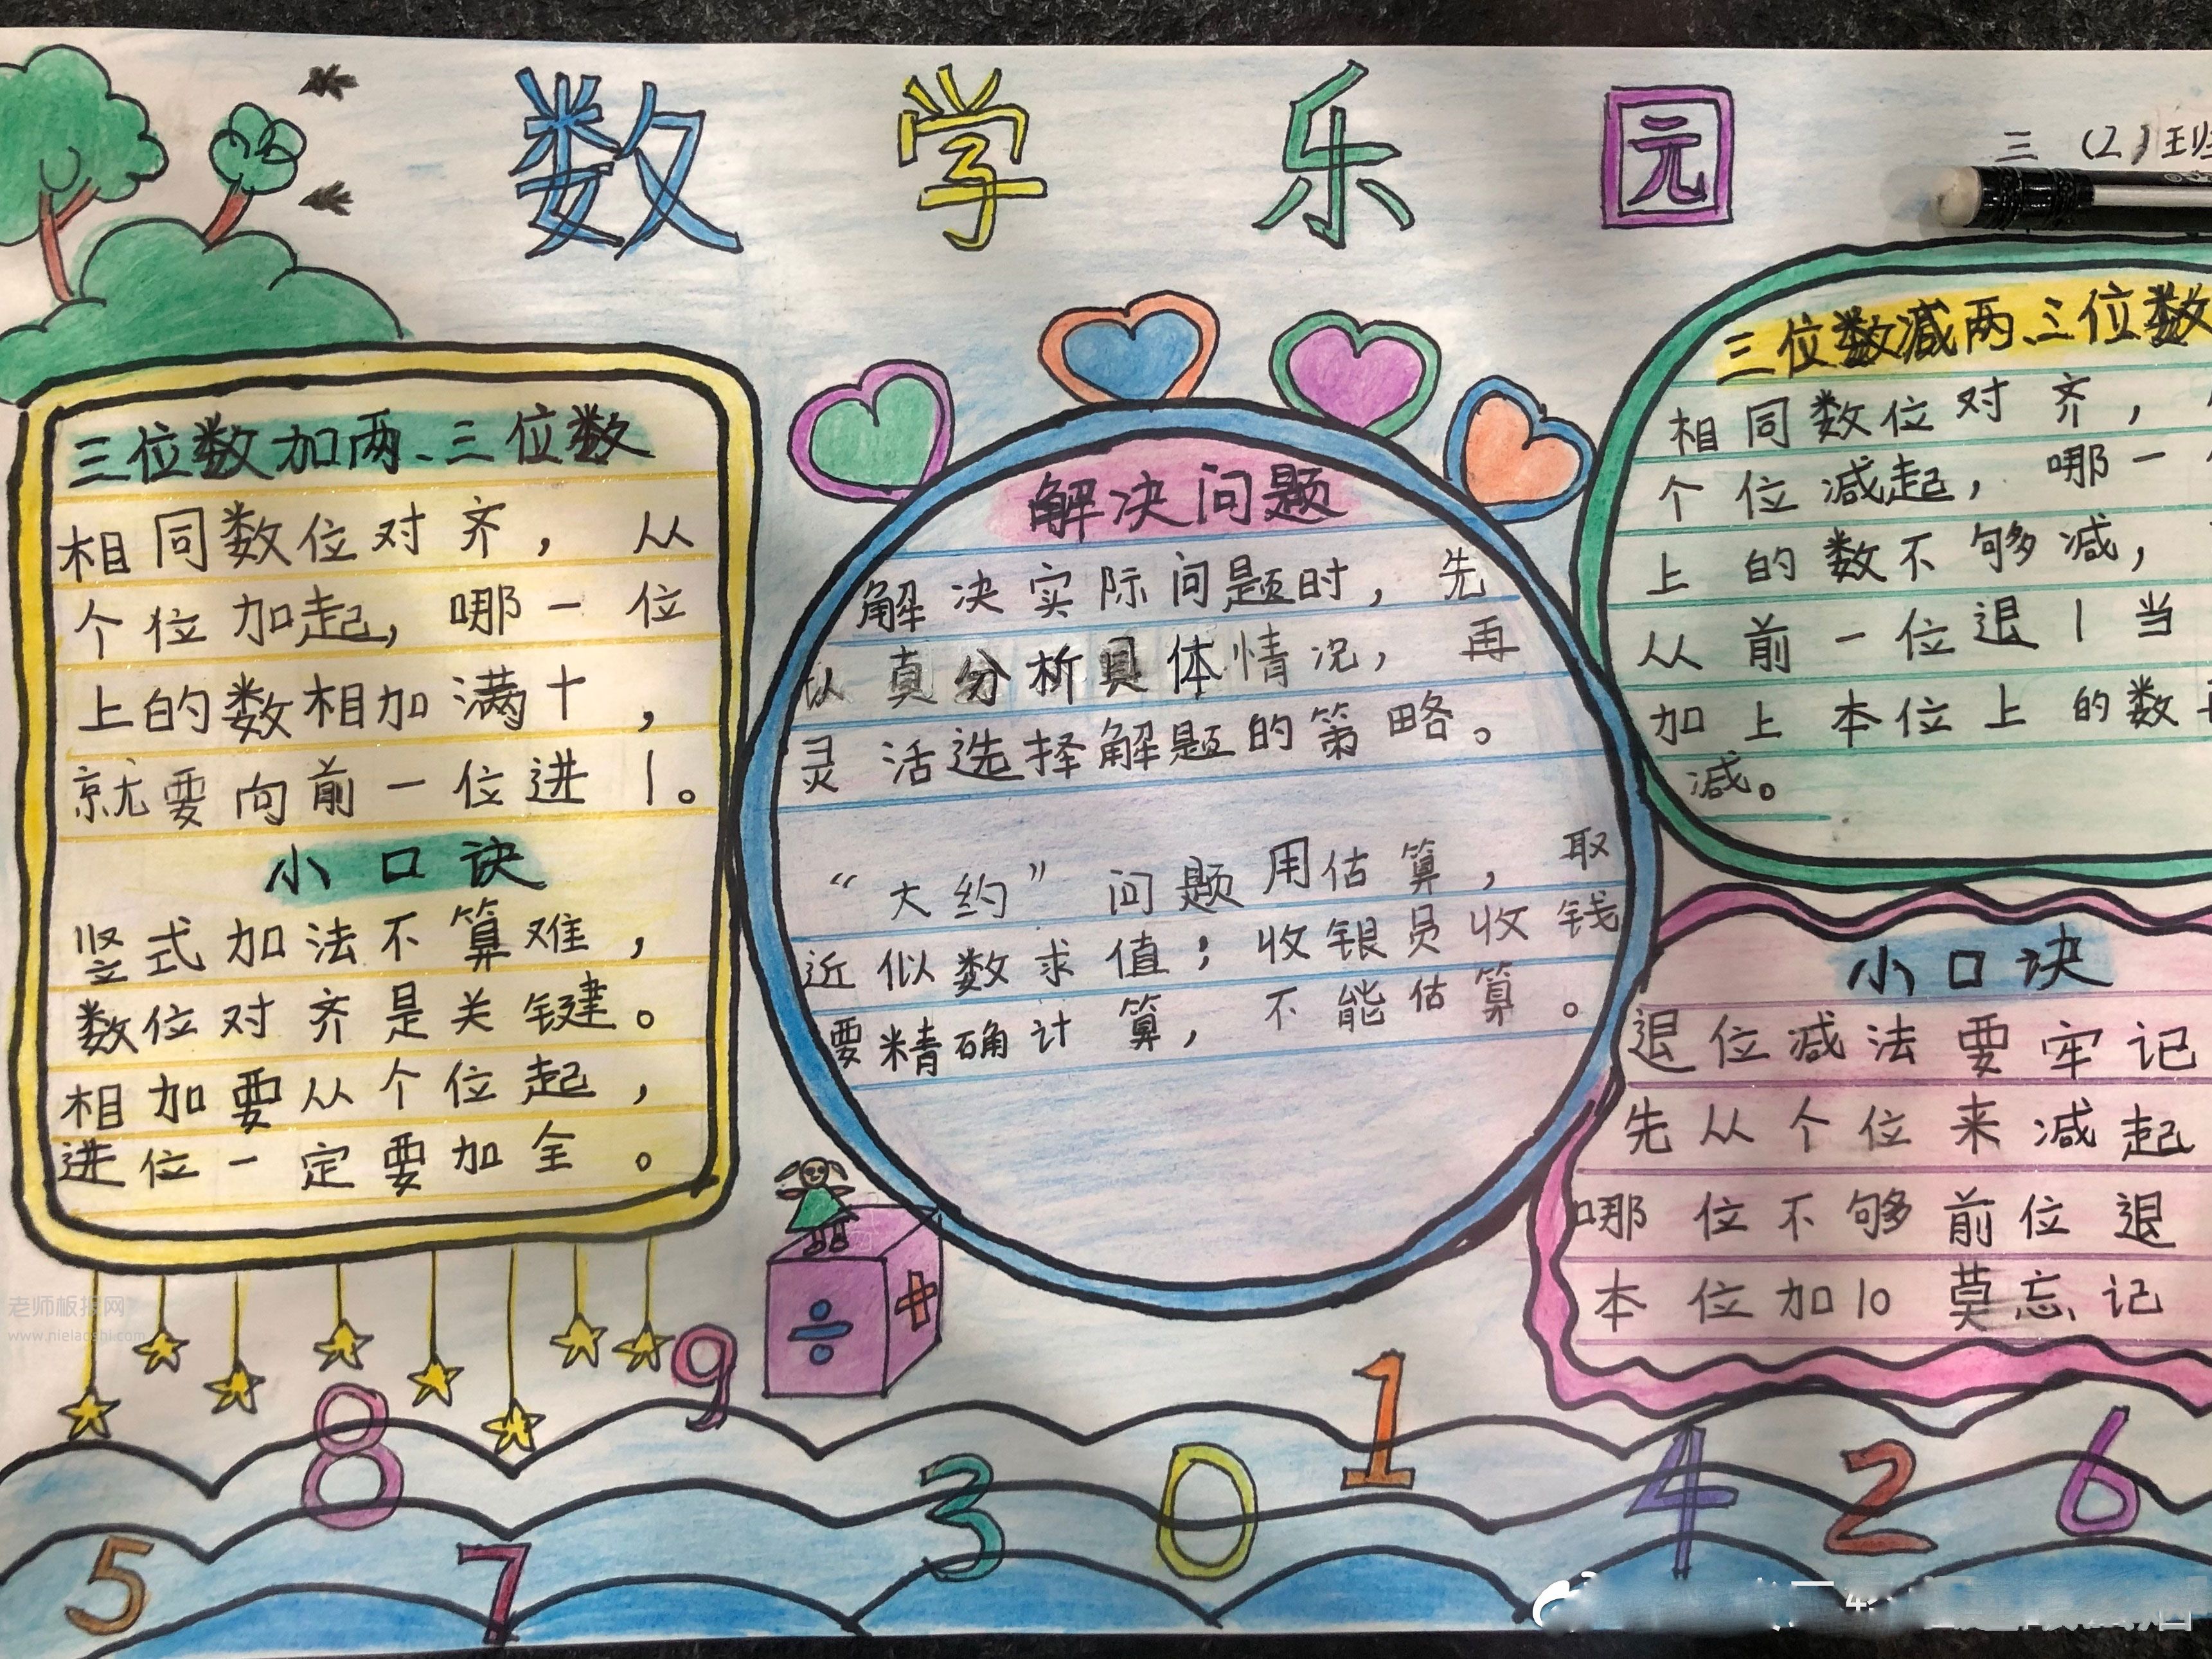 数学乐园
三（2）班
三位数加两、三位数
相同数位对齐，从
个位加起，哪一位
上的数相加满十，
就要向前一位进1。
小口诀
竖式加法不算难，
数位对齐是关键。
相加要从个位起，
进位一定要加全。
解决问题
解决实际问题时，先
认真分析具体情况，再
灵活选择解题的策略。
“大约”问题用估算，取
近似数求值；收银员收钱
要精确计算，不能估算。
三位数减两、三位数
相同数位对齐，
个位减起，哪一
上的数不够减，
从前一位退1当
加上本位上的数
减。
小口诀
退位减法要牢记
先从个位来减起
哪位不够前位退
本位加10莫忘记
÷ +
9
8
1
3 0 4 2 6
5 7
老师板报网
www.nielaoshi.com